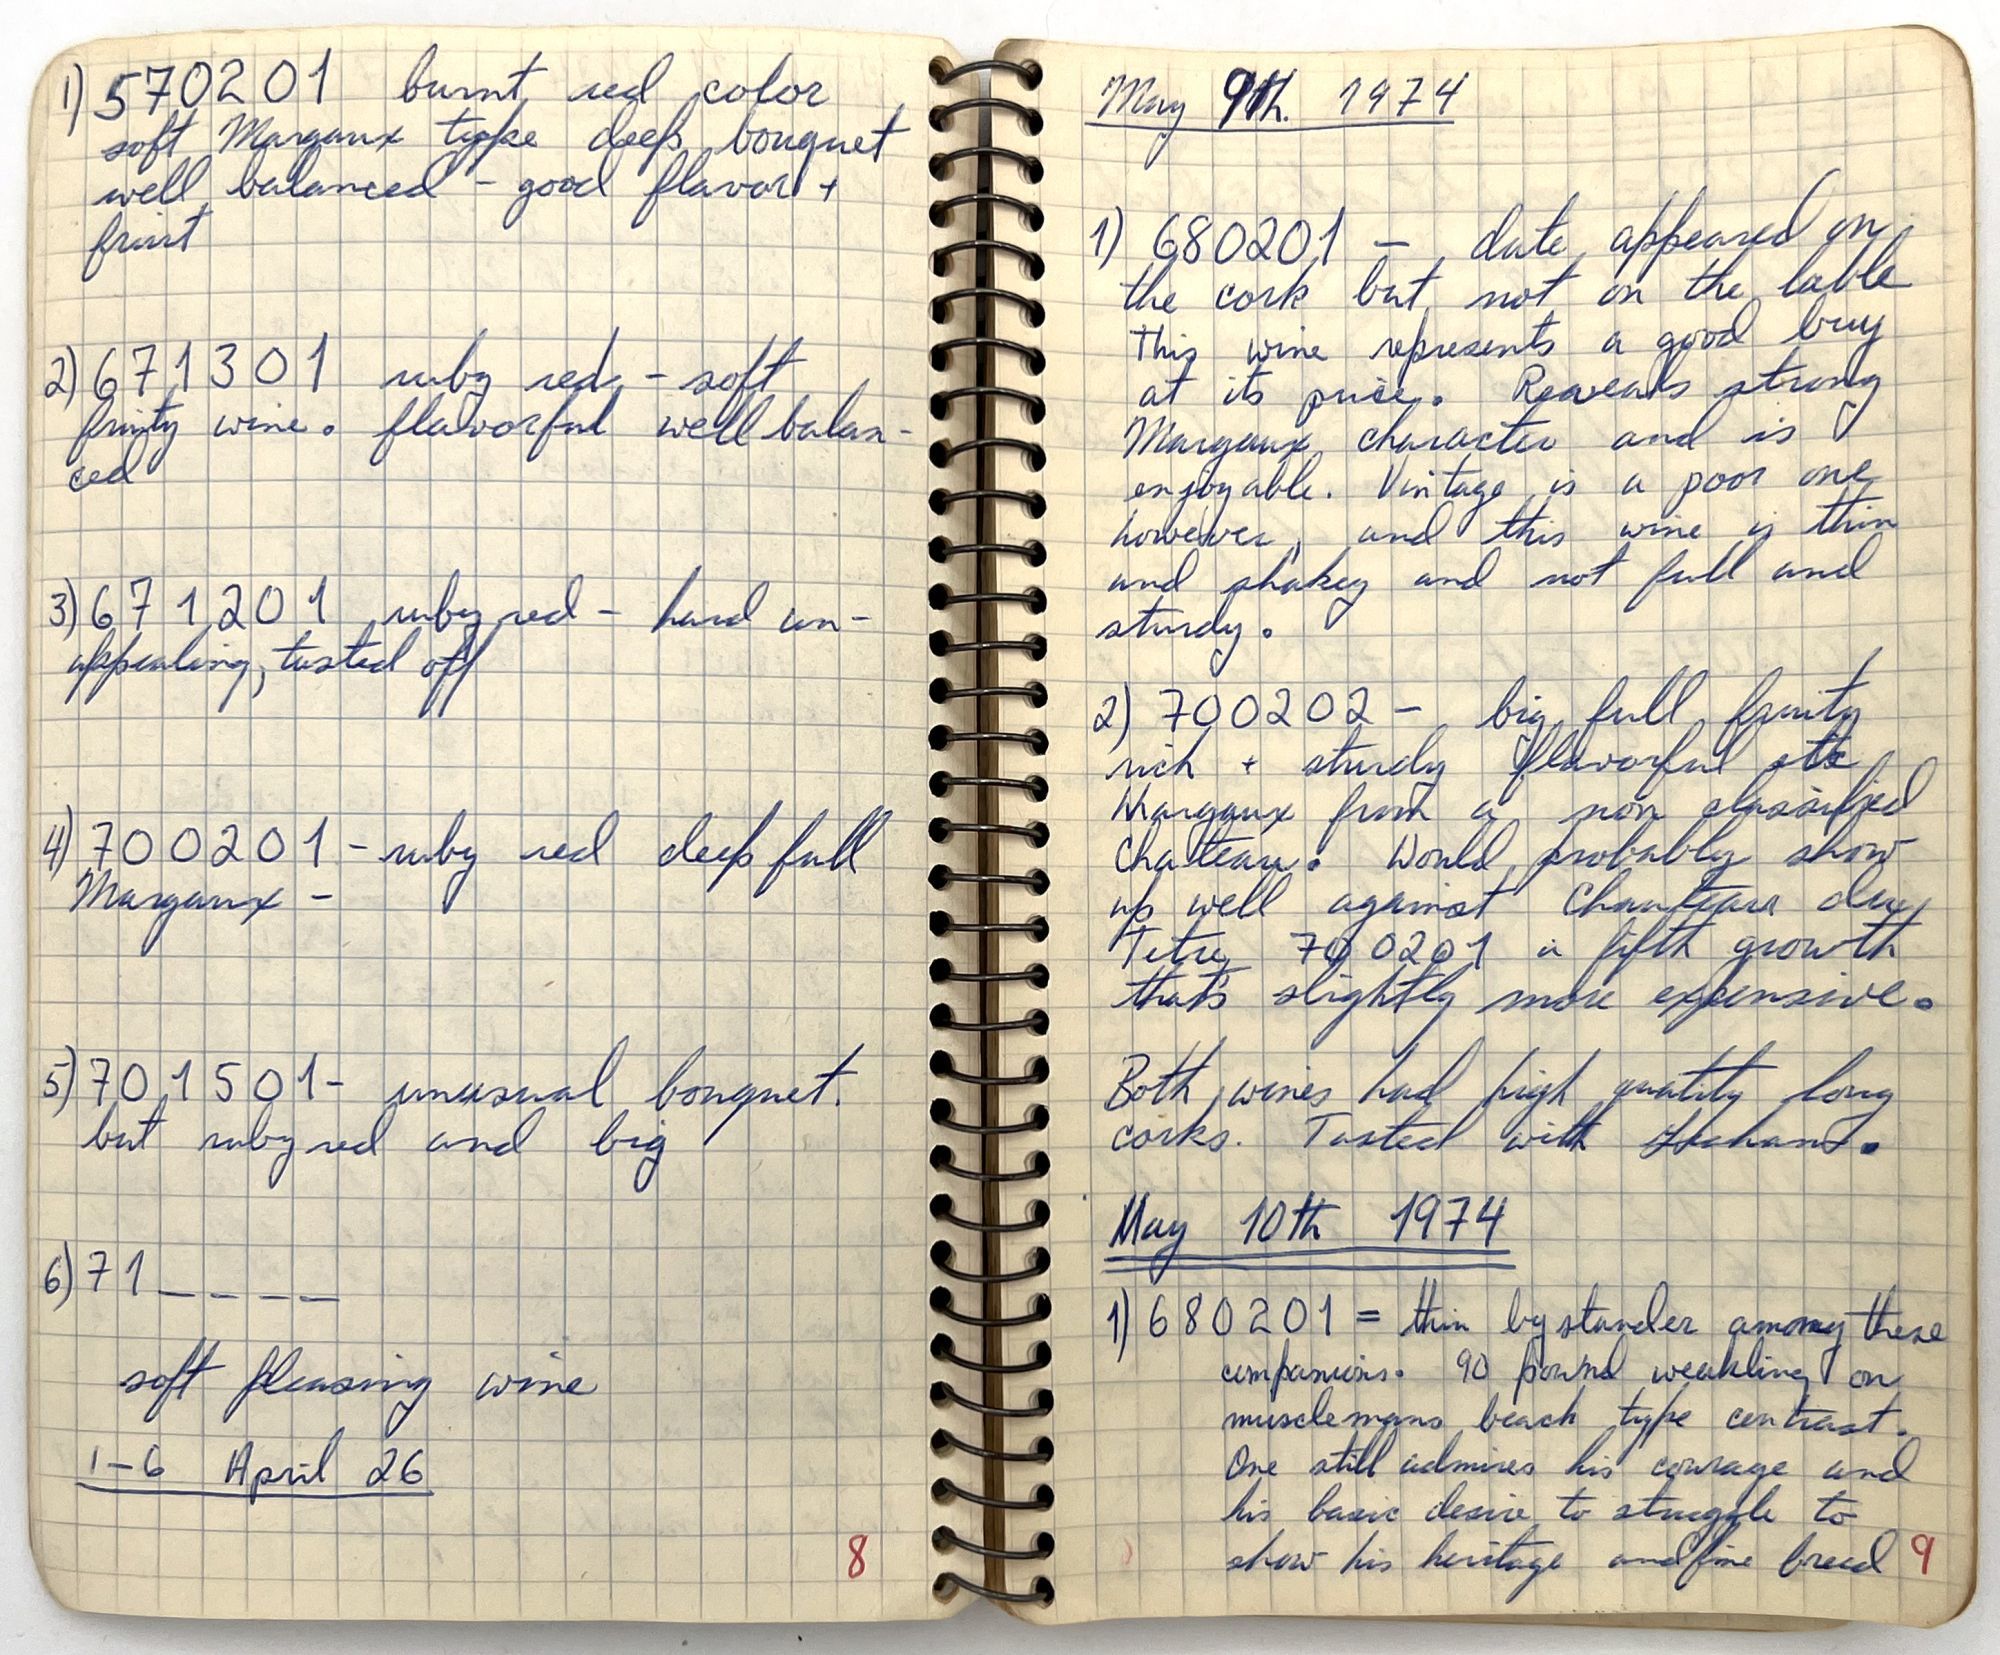 1) 570201 burnt red color
soft Margaux type deep bouquet
well balanced - good flavor +
fruit
2) 671301 ruby red - soft
fruity wine. flavorful well balan-
ced
3) 671201 ruby red - hard un-
appealing, tasted off
4) 700201 - ruby red deep full
Margaux -
5) 701501 - unusual bouquet.
but ruby red and big
6) 71_ _ _ _
soft pleasing wine
1-6 April 26
8
May 9th. 1974
1) 680201 - date appeared on
the cork but not on the lable
This wine represents a good buy
at its price. Reaveals strong
Margaux character and is
enjoyable. Vintage is a poor one
however, and this wine is thin
and shakey and not full and
sturdy.
2) 700202 - big full fruity
rich + sturdy flavorful
Margaux from a non classified
Chateau. Would probably show
up well against Chauteau du
Tetre 700201 a fifth growth
that's slightly more expensive.
Both wines had high quality long
corks. Tasted with
May 10th 1974
1) 680201 = thin bystander among these
companions. 90 pound weakling on
musclemans beach type contrast.
One still admires his courage and
his basic desire to struggle to
show his heritage and fine breed
9